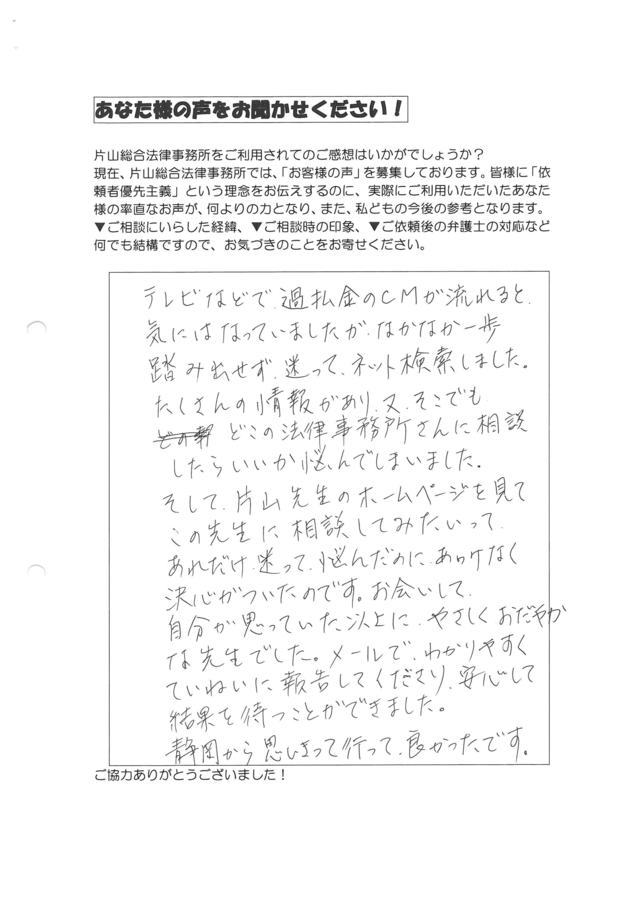 あなた様の声をお聞かせください！
片山総合法律事務所をご利用されてのご感想はいかがでしょうか？
現在、片山総合法律事務所では、「お客様の声」を募集しております。皆様に「依
頼者優先主義」という理念をお伝えするのに、実際にご利用いただいたあなた
様の率直なお声が、何よりの力となり、また、私どもの今後の参考となります。
▼ご相談にいらした経緯、▼ご相談時の印象、▼ご依頼後の弁護士の対応など
何でも結構ですので、お気づきのことをお寄せください。
テレビなどで、過払金のCMが流れると、
気にはなっていましたが、なかなか一歩
踏み出せず、迷って、ネット検索しました。
たくさんの情報があり、又、そこでも
どこの法律事務所さんに相談
したらいいか悩んでしまいました。
そして、片山先生のホームページを見て
この先生に相談してみたいって、
あれだけ、迷って、悩んだのに、あっけなく
決心がついたのです。お会いして、
自分が思っていた以上に、やさしくおだやか
な先生でした。メールで、わかりやすく
ていねいに報告してくださり、安心して
結果を待つことができました。
静岡から思いきって行って、良かったです。
ご協力ありがとうございました！